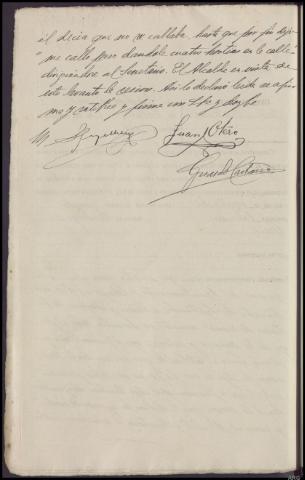 él decia que no se callaba, hasta que por fin dijo
me callo pero dandole cuatro hostias en la calle
dirigiendose al Secretario. El Alcalde en vista de
esto levanto la sesion. Asi lo declaro leida se afir
mo y ratifico y firma con S.Sª y doy fe
Juan Otero
Gerardo